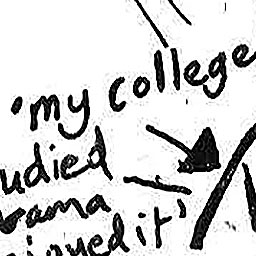 'my college
udied
rama
joyed it'